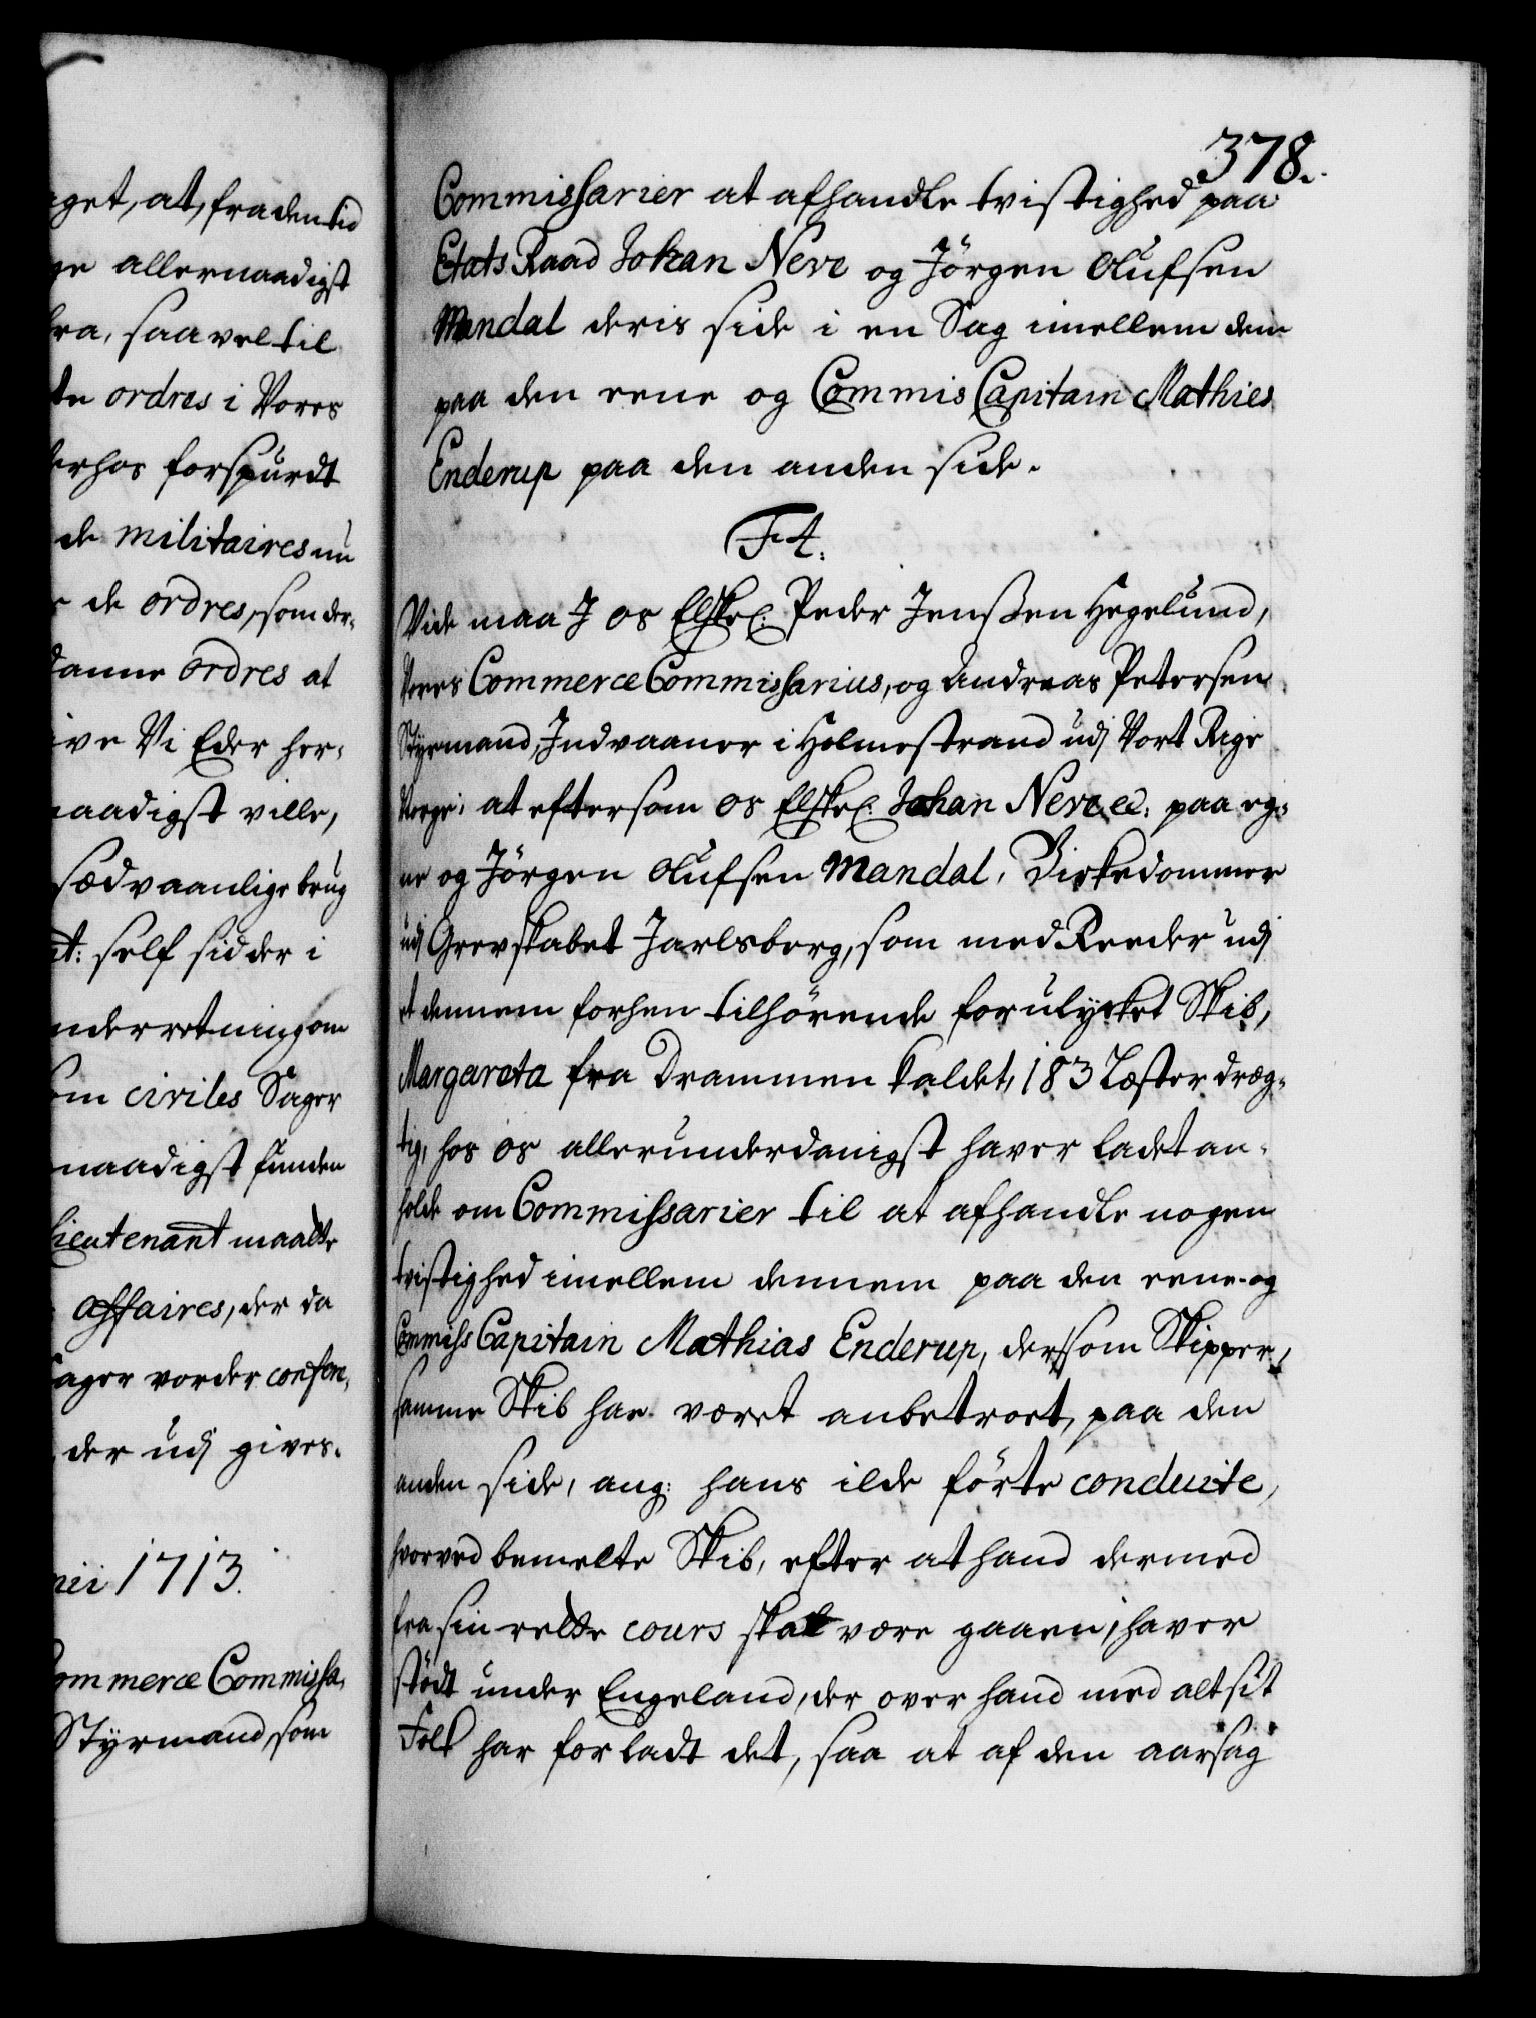 get, at, fra den tid
ge allernaadigst
fra, saavel til
te ordres i Vores
derhos forspurdt
de militaires nu
de ordres, som der-
danne ordres at
give Vi Eder her-
naadigst ville,
sædvaanlige brug
nt: self sidder i
underretning om
som civiles Sager
naadigst funden
Lieutenant maatte
affaires, der da
Sager vorder confen,
der udj gives.
nii 1713.
Commerce Commissa,
Styrmand, som
378.
Commissarier at afhandle tvistighed paa
Etats Raad Johan Neve og Jörgen Olufsen
Mandal deris side i en Sag imellem dem
paa den eene og Commis Capitain Mathies
Enderup paa den anden side.
F4.
Vide maa J os Elskel: Peder Jenssen Hegelund,
Vores Commerce Commissarius, og Andreas Petersen
Styrmand, Indvaaner i Holmestrand udj Vort Rige
Norge; at eftersom os Elskel: Johan Neve ec. paa eg-
ne og Jörgen Olufsen Mandal, Birkedommer
udj Grevskabet Jarlsberg, som med Reeder udj
et dennem forhen tilhörende forulycket Skib,
Margareta fra Drammen kaldet, 183 Læster dræg-
tig, hos os allerunderdanigst haver ladet an-
holde om Commissarier til at afhandle nogen
tvistighed imellem dennem paa den eene og
Commiss Capitain Mathias Enderup, der som Skipper,
samme Skib har været anbetroet, paa den
anden side, ang: hans ilde förte conduite,
hvorved bemelte Skib, efter at hand dermed
fra sin rette cours skal være gaaen, haver
stödt under Engeland, der over hand med alt sit
Folk har forladt det, saa at af den aarsag